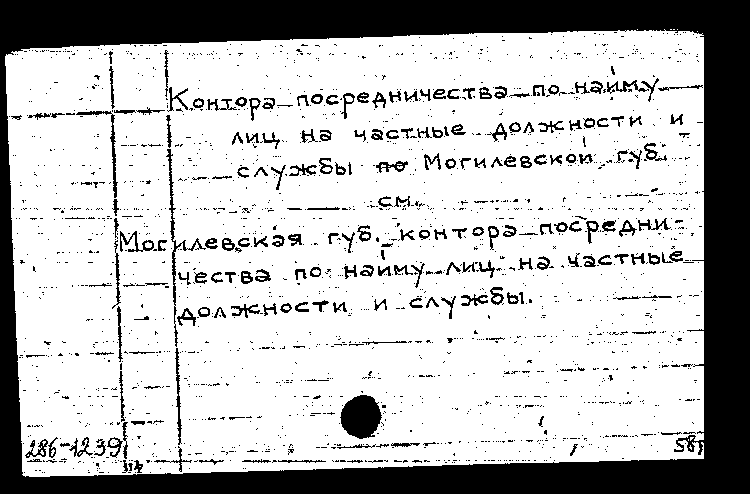 Контора посредничества по найму
лиц на частные должности и
службы по Могилевской губ.
см.
Могилевская губ. контора посредни-
чества по найму лиц на частные
должности и службы.
286-1239